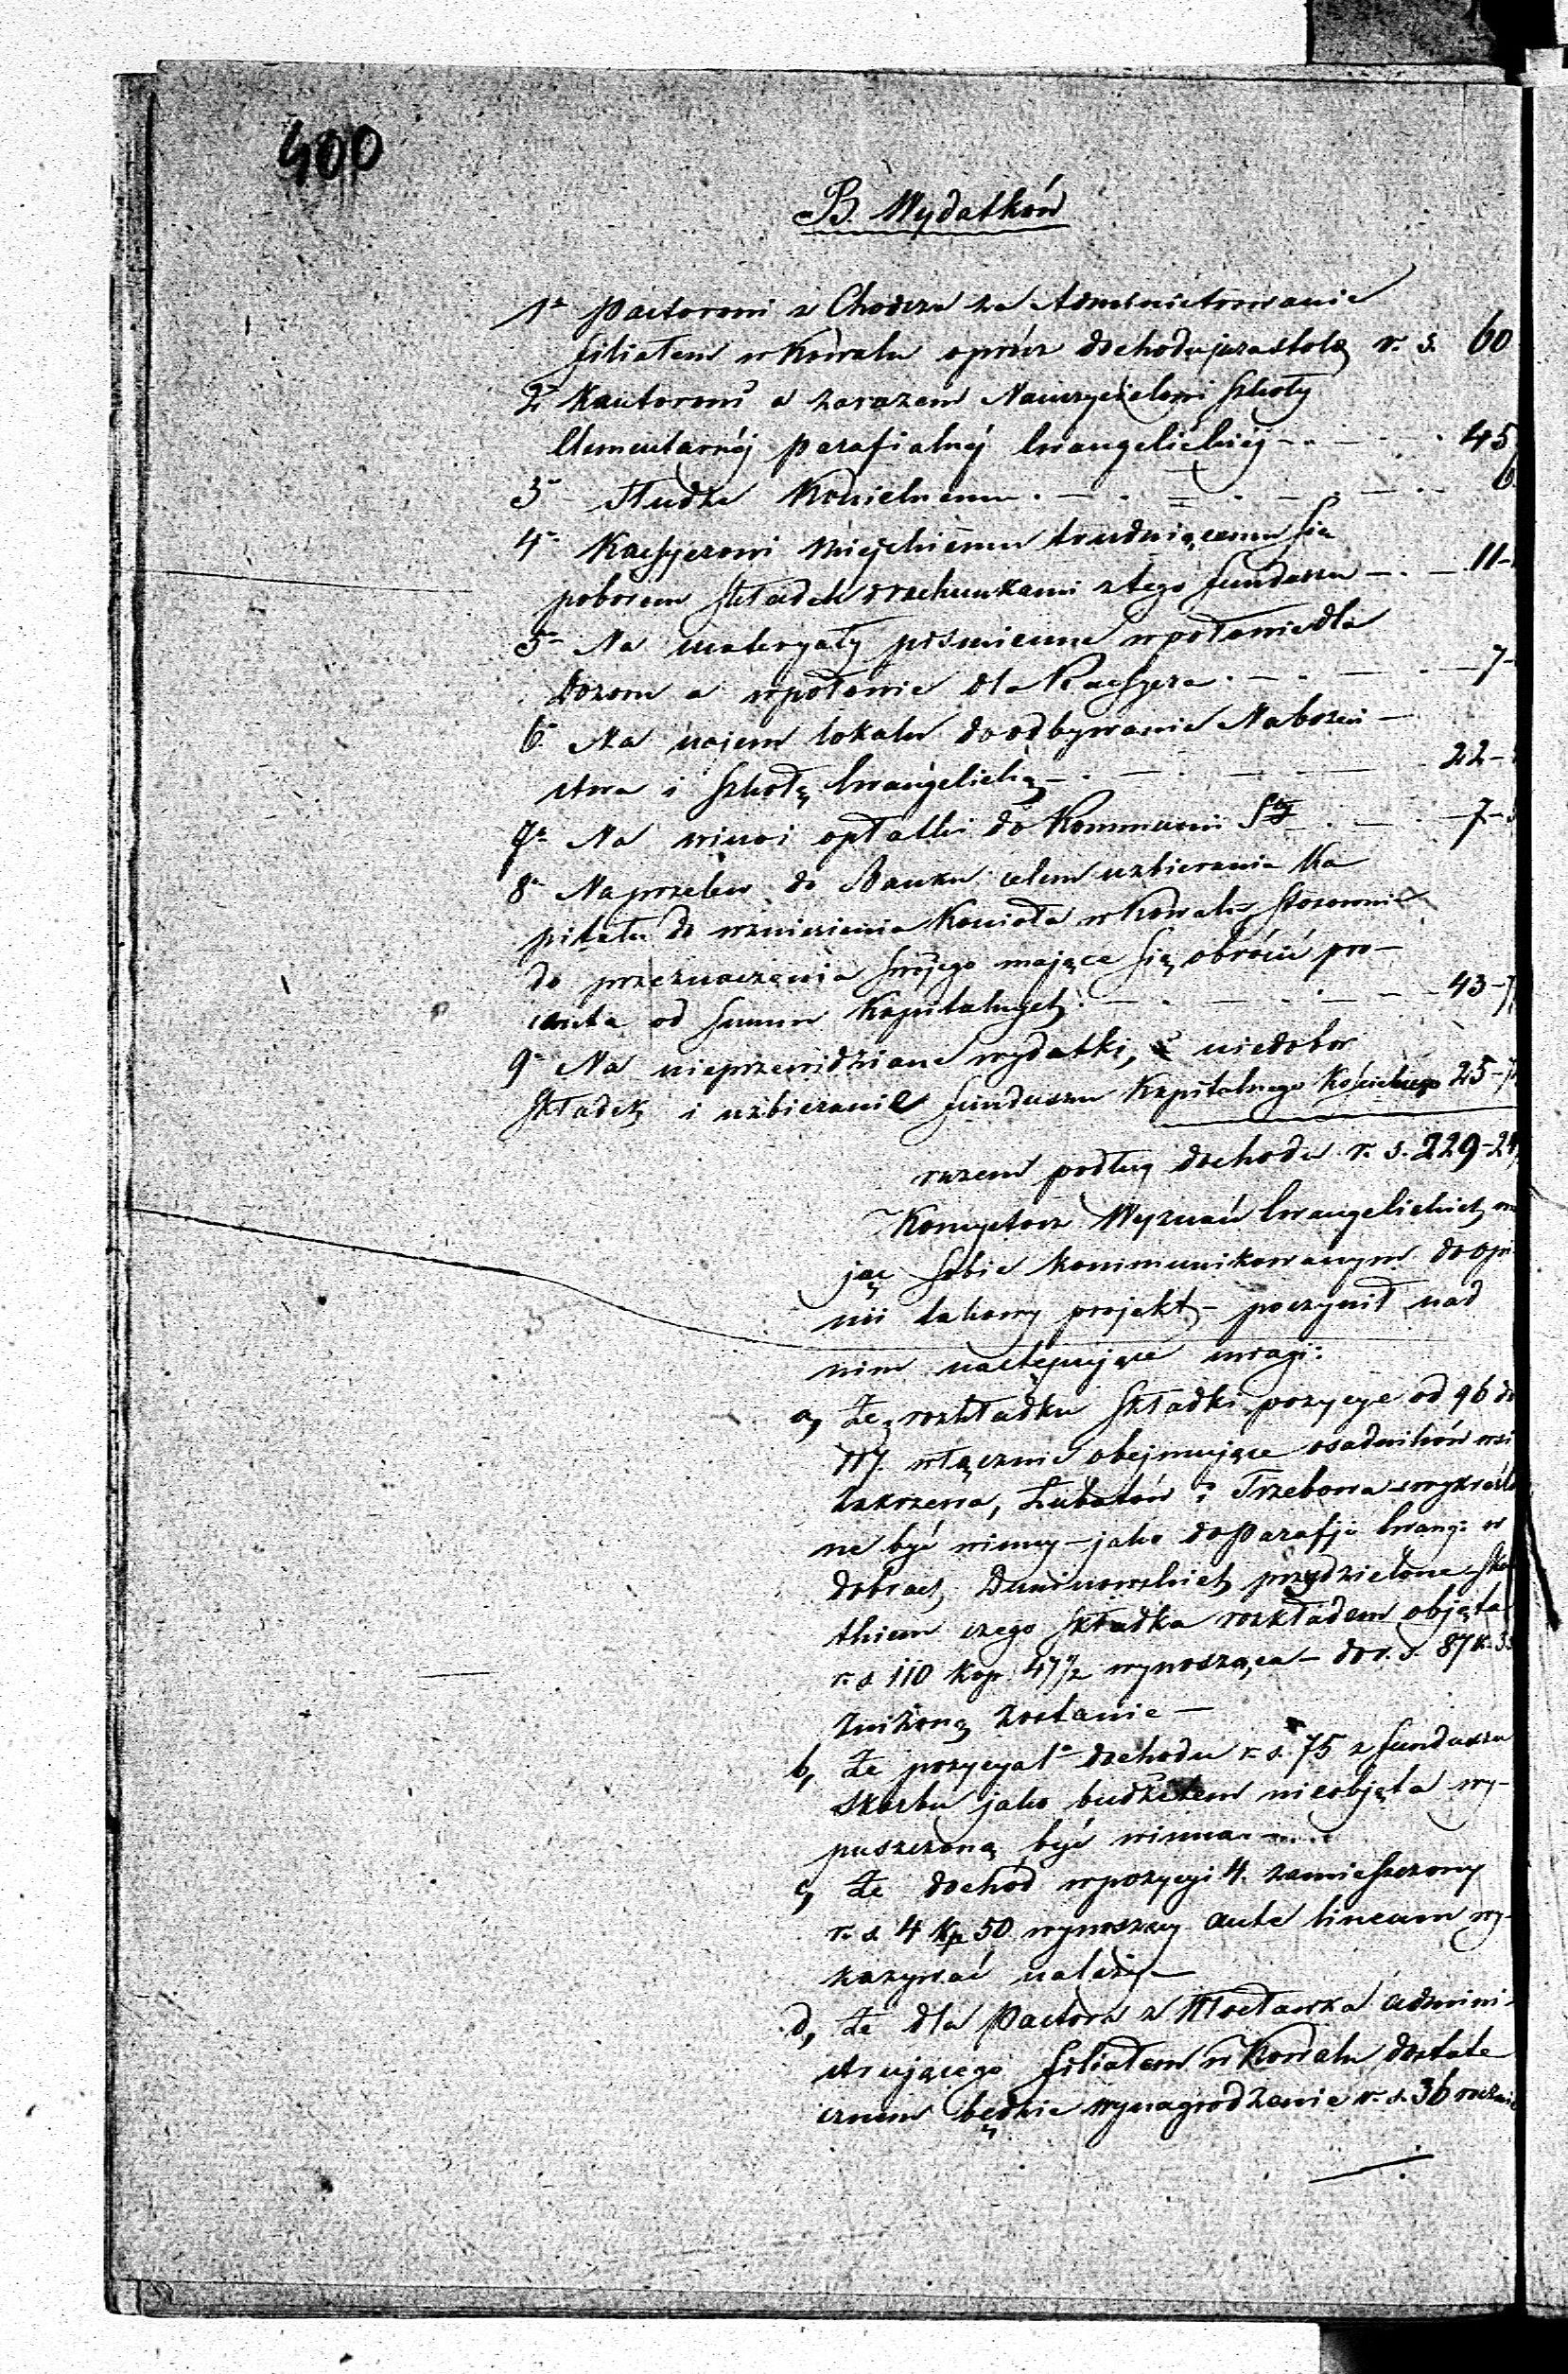 400
B. Wydatków
1° Pastorowi z Chodcza za Administrowanie
filiałem w Kowalu oprócz dochodu jura stolæ r. s. 60
2° Kantorowi a zarazem Nauczycielowi Szkoły
Elementarnéj parafialnéj Ewangelickiéj - . — . 45
3° Słudze Kościelnemu . — . — . — . — . 6
4° Kassyerowi Miejskiemu trudniącemu się
poborem Składek i rachunkami z tego funduszu — . — 11 -
5° Na materyały piśmienne w połowie dla
Dozoru a w połowie dla Kassyera . — . — . — 7 -
6° Na najem lokalu do odbywania Nabożeń-
stwa i Szkołę Ewangelicką — . — . — . 22 -
7° Na wino i opłatki do Kommunii Stéj . — . — 7 -
8° Na przelew do Banku celem uzbierania Ka
pitału do wzniesienia Kościoła w Kowalu, stosownie
do przeznaczenia swojego mające się obrócić pro-
centa od summ Kapitalnych . — . — . — 43 -
9° Na nieprzewidziane wydatki, niedobor
Składek i uzbieranie funduszu Kapitalnego Kościelnego 25 -
razem podług dochodu r. s. 229 - 24
Konsystorz Wyznań Ewangelickich ma
jąc sobie kommunikowanym do opi
nii takowy projekt — poczynił nad
nim następujące uwagi:
a, Że z rozkładku Składki pozycye od 96 do
117. włącznie obejmujące osadników wsi
Zakrzewa, Lubatów i Trzebowa wykreślo
ne być winny — jako do Parafji Ewang: w
dobrach Duninowskich przydzielone, sku
tkiem czego Składka rozkładem objęta
r. s 110 kop. 47 1/2 wynosząca — do r. s. 87 k. 3
zniżoną zostanie —
b, Że pozycya 1° dochodu r. s. 75 z funduszu
Skarbu jako budżetem nieobjęta wy-
puszczoną być winna. —
c, Że dochód w pozycyi 4. zamieszczony
r. s. 4 kp 50 wynoszący ante lineam wy-
kazywać należy —
d, Że dla Pastora z Włocławka admini-
strującego filiałem w Kowalu dostate
cznem będzie wynagrodzenie r. s. 36 rocznie